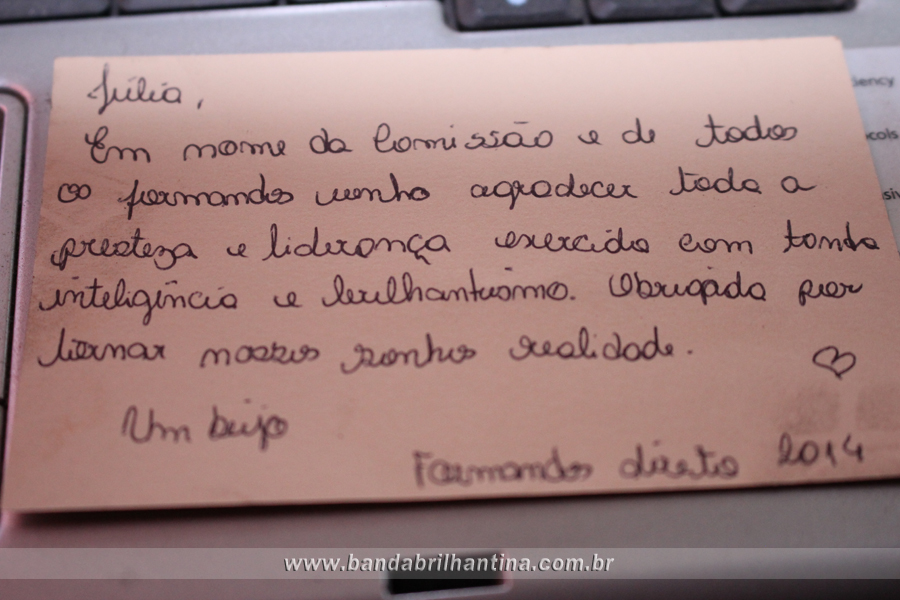 Júlia,
Em nome da Comissão e de todos
os formandos venho agradecer toda a
presteza e liderança exercida com tanta
inteligência e brilhantismo. Obrigada por
tornar nosso sonho realidade.
Um beijo
Formandos direito 2014
iency
cols
siv
www.bandabrilhantina.com.br